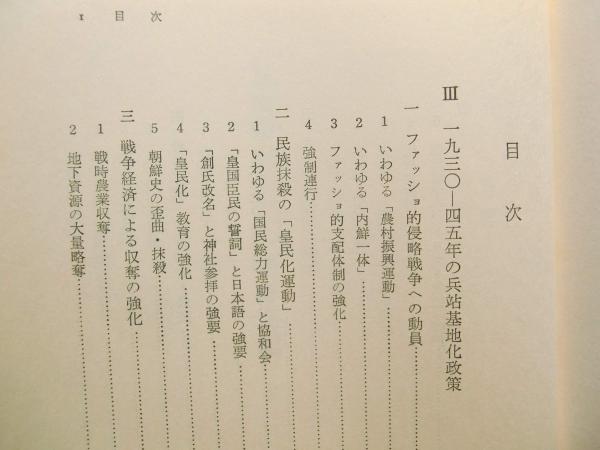 I 目次
目次
III 一九三〇―四五年の兵站基地化政策
一 ファッショ的侵略戦争への動員
1 いわゆる「農村振興運動」
2 いわゆる「内鮮一体」
3 ファッショ的支配体制の強化
4 強制連行
二 民族抹殺の「皇民化運動」
1 いわゆる「国民総力運動」と協和会
2 「皇国臣民の誓詞」と日本語の強要
3 「創氏改名」と神社参拝の強要
4 「皇民化」教育の強化
5 朝鮮史の歪曲・抹殺
三 戦争経済による収奪の強化
1 戦時農業収奪
2 地下資源の大量略奪